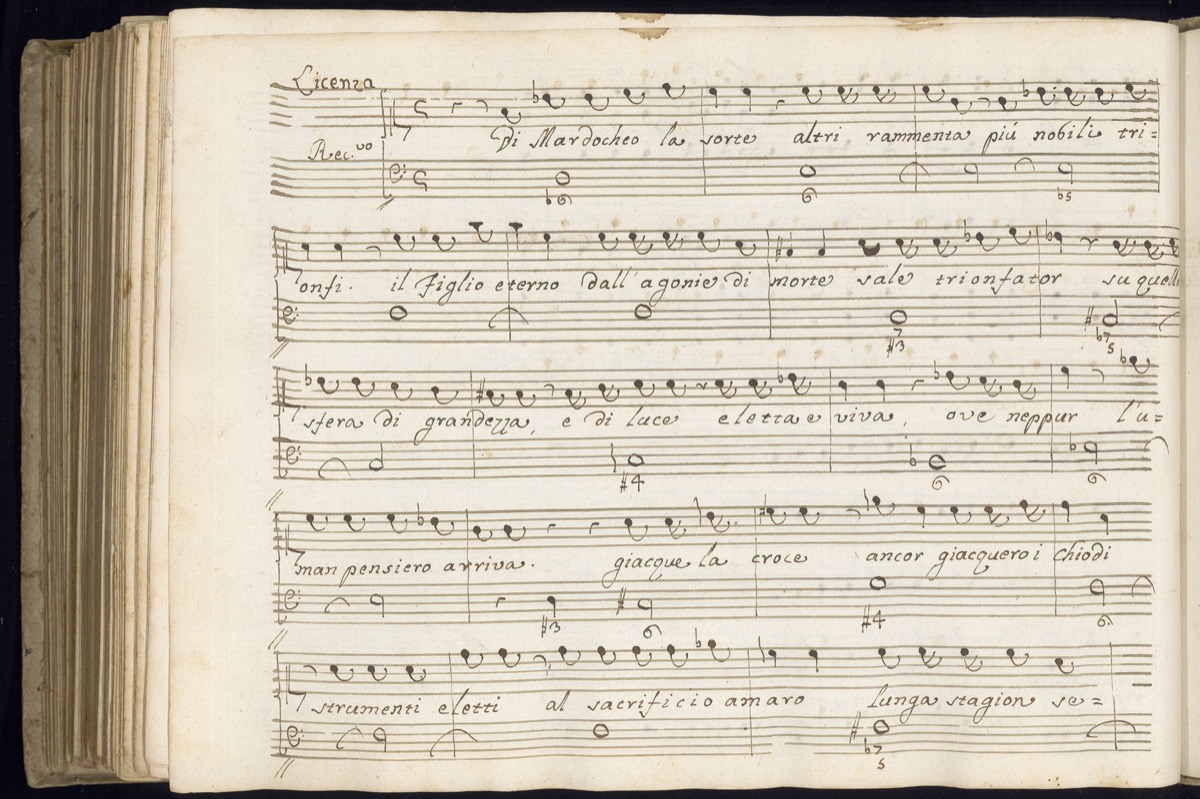 Licenza
Di Mardocheo la sorte altri rammenta più nobili tri=
Rec.vo
♭6 6 ♭5
onfi. il Figlio eterno dall'agonie di morte sale trionfator su quella
7 ♯3 ♭7 5
sfera di grandezza, e di luce eletta e viva, ove neppur l'u=
♯4 6 6
man pensiero arriva. giacque la croce ancor giacquero i chiodi
♯3 6 ♯4 6
strumenti eletti al sacrificio amaro lunga stagion se=
♭7 5